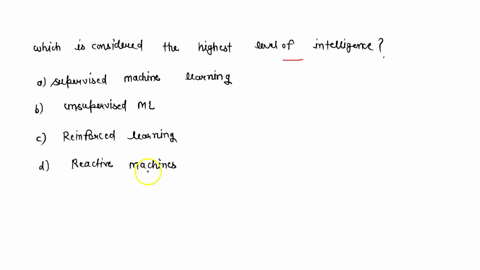 which is considered the highest level of intelligence?
a) supervised machine learning
b) unsupervised ML
c) Reinforced learning
d) Reactive machines